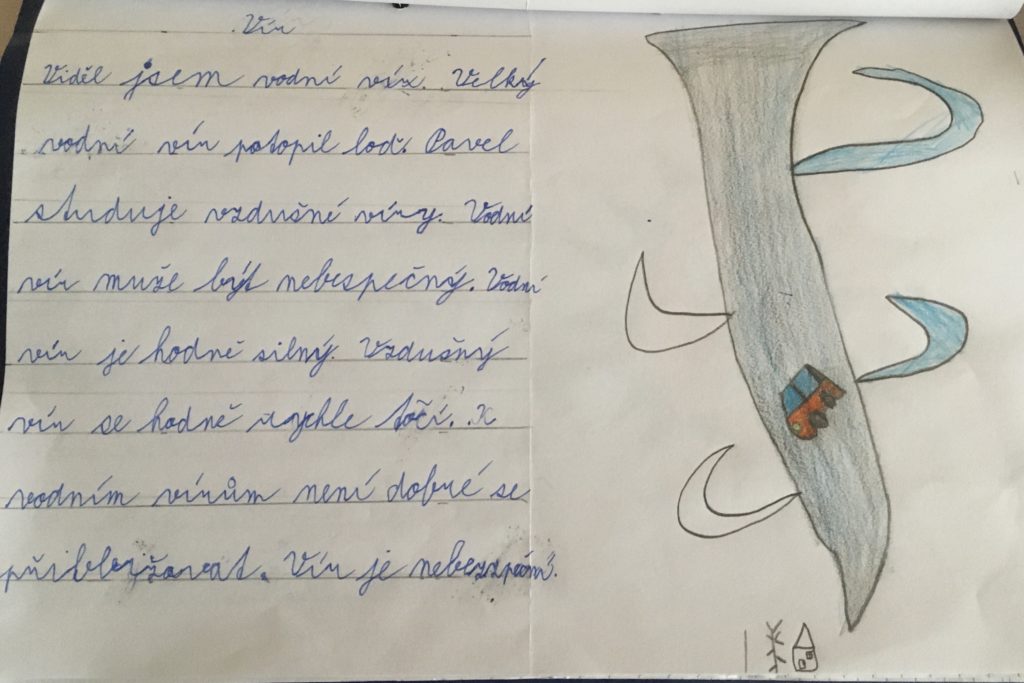 Vír
Viděl jsem vodní vír. Velký
vodní vír potopil loď. Pavel
studuje vzdušné víry. Vodní
vír muže být nebezpečný. Vodní
vír je hodně silný. Vzdušný
vír se hodně rychle točí. K
vodním vírům není dobré se
přibližovat. Vír je nebezpční.